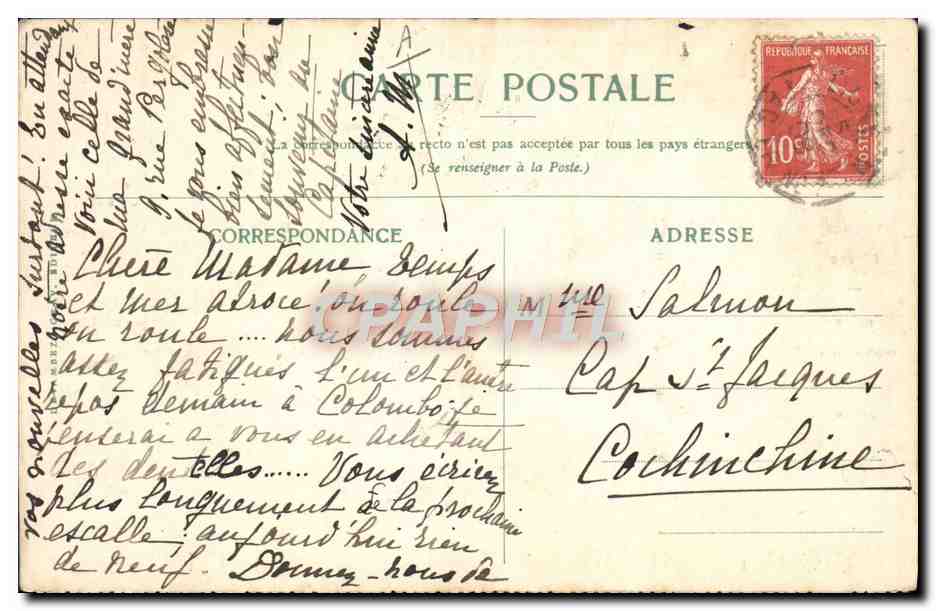 CARTE POSTALE
La correspondance au recto n'est pas acceptée par tous les pays étrangers
(Se renseigner à la Poste.)
REPUBLIQUE FRANÇAISE
10c
POSTES
CORRESPONDANCE
ADRESSE
Chère Madame, temps
et mer atroce on roule
on roule .... nous sommes
assez fatigués l'un et l'autre
repos demain à Colombo, je
penserai a vous en achetant
des dentelles...... Vous écrirez
plus longuement à la prochaine
escalle; aujourd'hui rien
de neuf. Donnez-nous de
vos nouvelles surtout! En attendant
notre adresse exacte
voici celle de
ma grand'mère
rue
Je vous embrasse
bien affectueu-
sement; bon
souvenir du
Capitaine
Votre
A. M
Mme Salmon
Cap St Jacques
Cochinchine
CPAPHIL